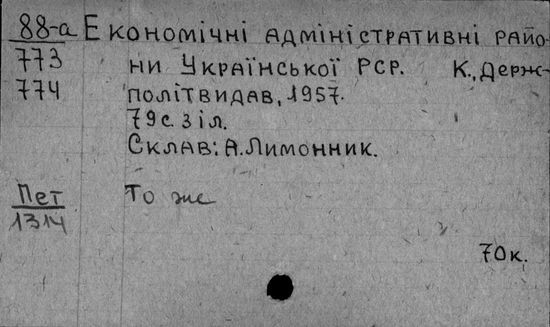 88-а Економічні адміністративні райо-
773 ни Української РСР. К., Держ-
774 політвидав, 1957.
79с. з іл.
Склав: А. Лимонник.
Пет То же
1314
70к.